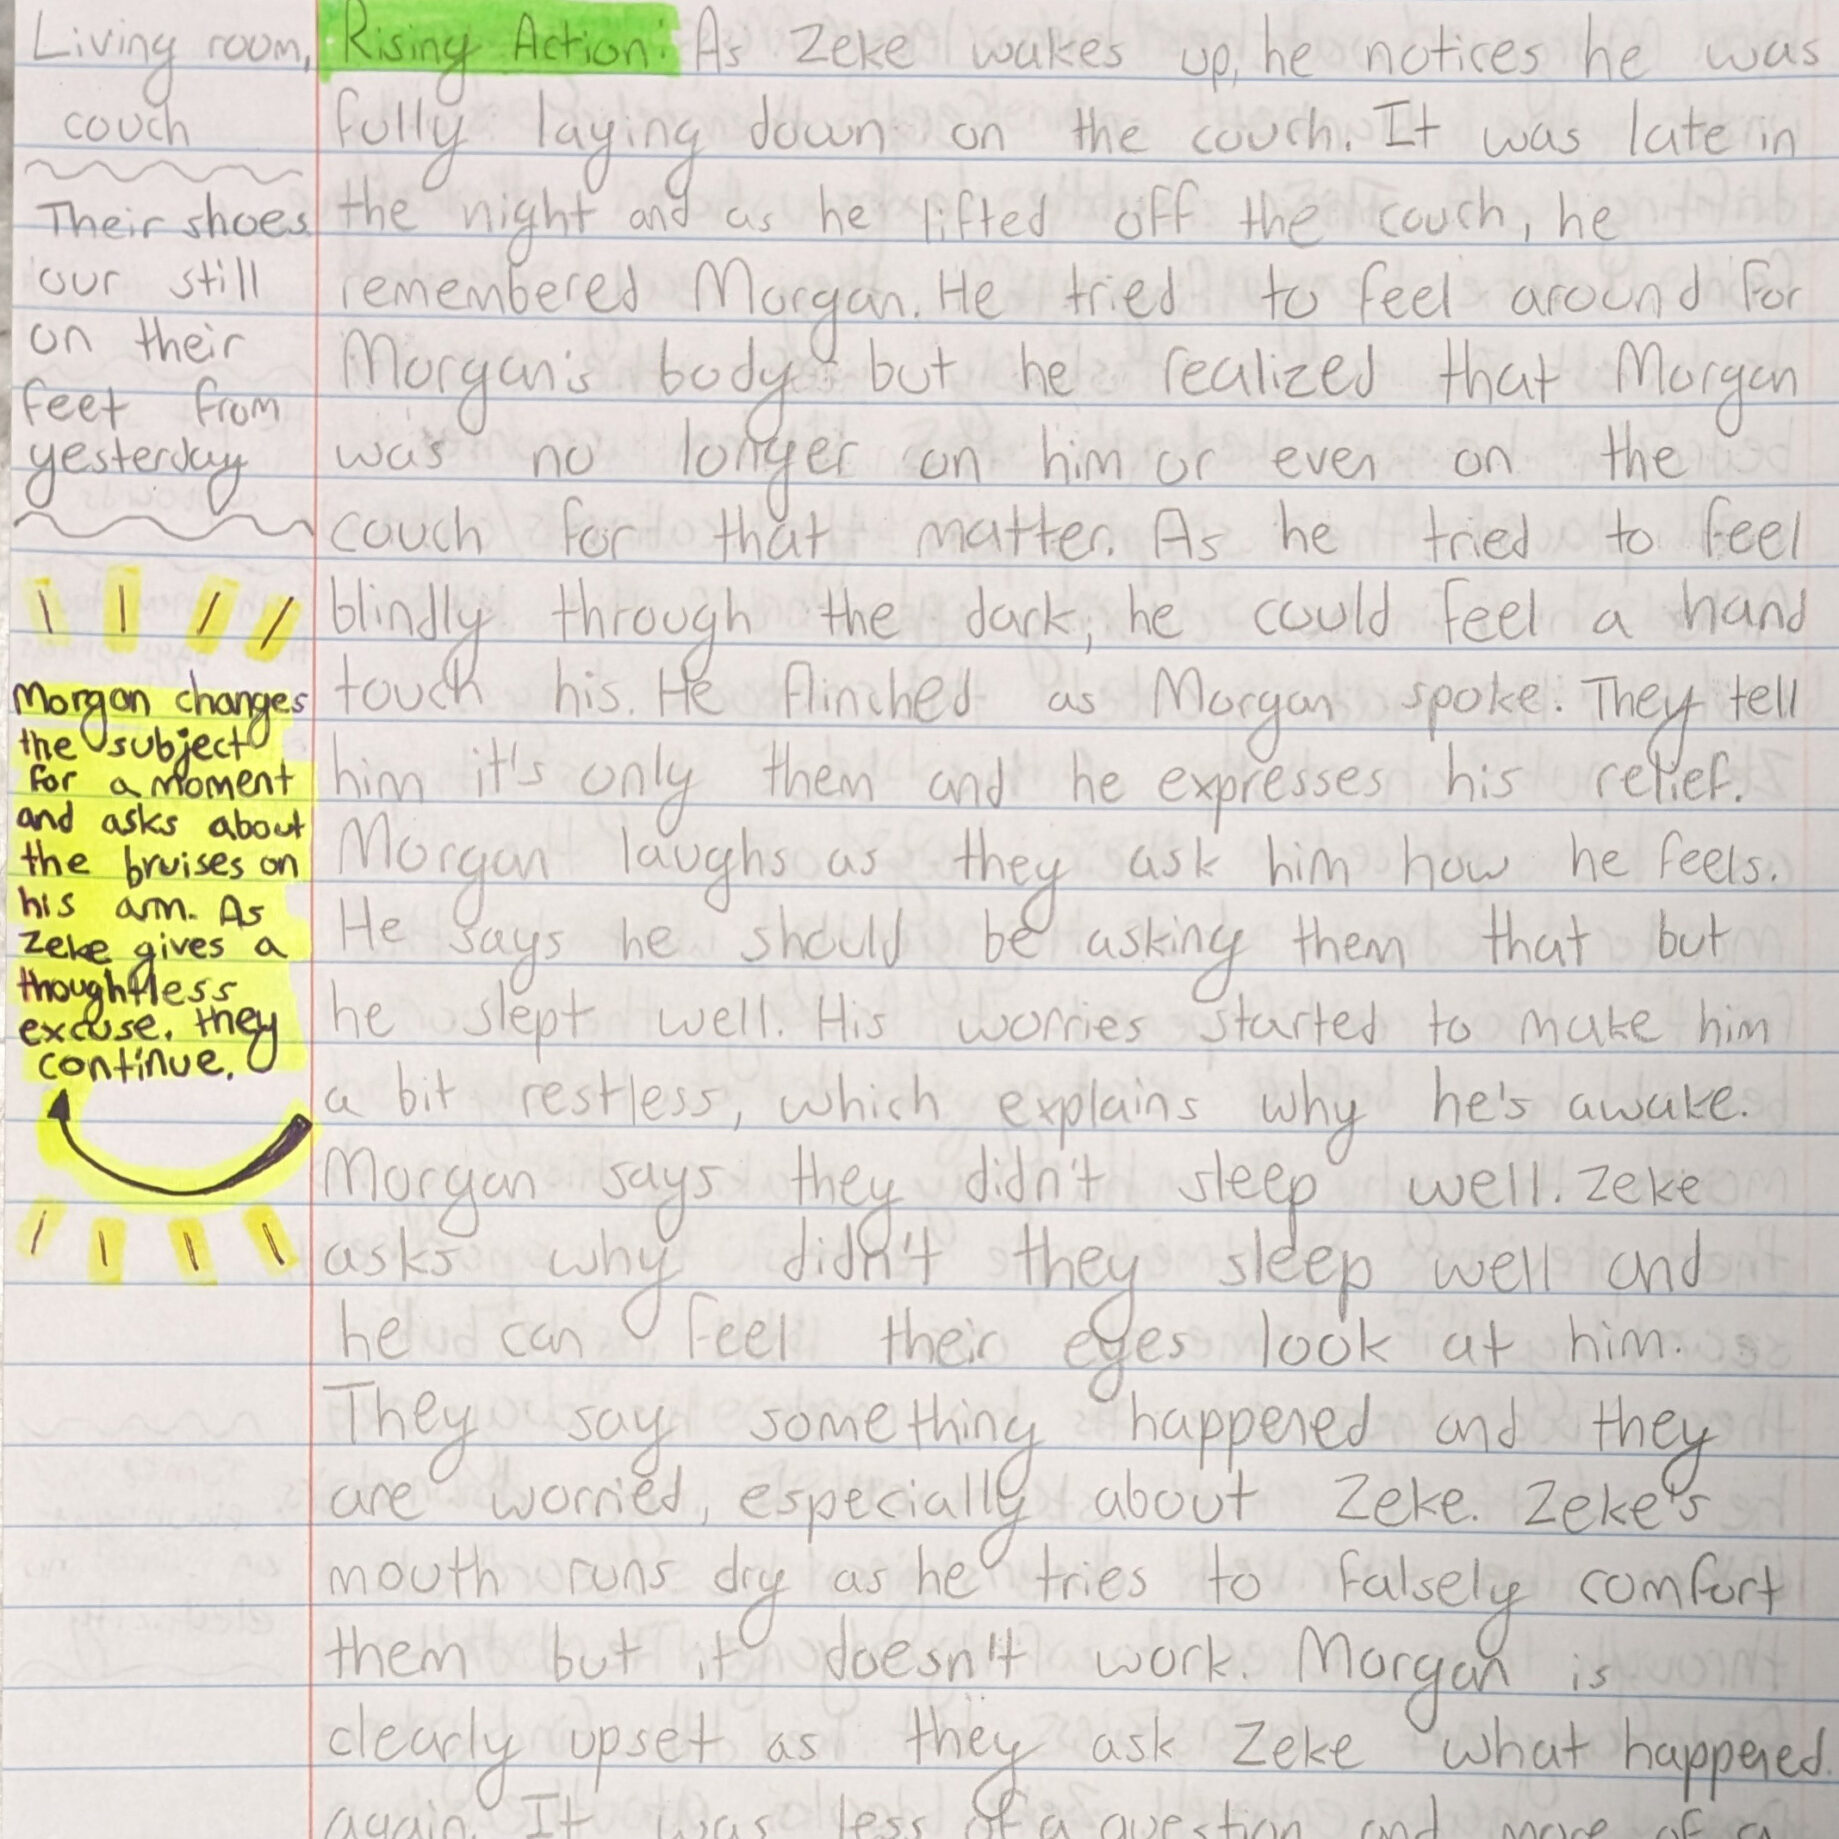 Living room,
couch
Their shoes
our still
on their
feet from
yesterday
Morgan changes
the subject
for a moment
and asks about
the bruises on
his arm. As
Zeke gives a
thoughtless
excuse, they
continue.
Rising Action: As Zeke wakes up, he notices he was
fully laying down on the couch. It was late in
the night and as he lifted off the couch, he
remembered Morgan. He tried to feel around for
Morgan's body but he realized that Morgan
was no longer on him or even on the
couch for that matter. As he tried to feel
blindly through the dark, he could feel a hand
touch his. He flinched as Morgan spoke. They tell
him it's only them and he expresses his relief.
Morgan laughs as they ask him how he feels.
He says he should be asking them that but
he slept well. His worries started to make him
a bit restless, which explains why he's awake.
Morgan says they didn't sleep well. Zeke
asks why didn't they sleep well and
he can feel their eyes look at him.
They say something happened and they
are worried, especially about Zeke. Zeke's
mouth runs dry as he tries to falsely comfort
them but it doesn't work. Morgan is
clearly upset as they ask Zeke what happened
again. It was less of a question and more of a